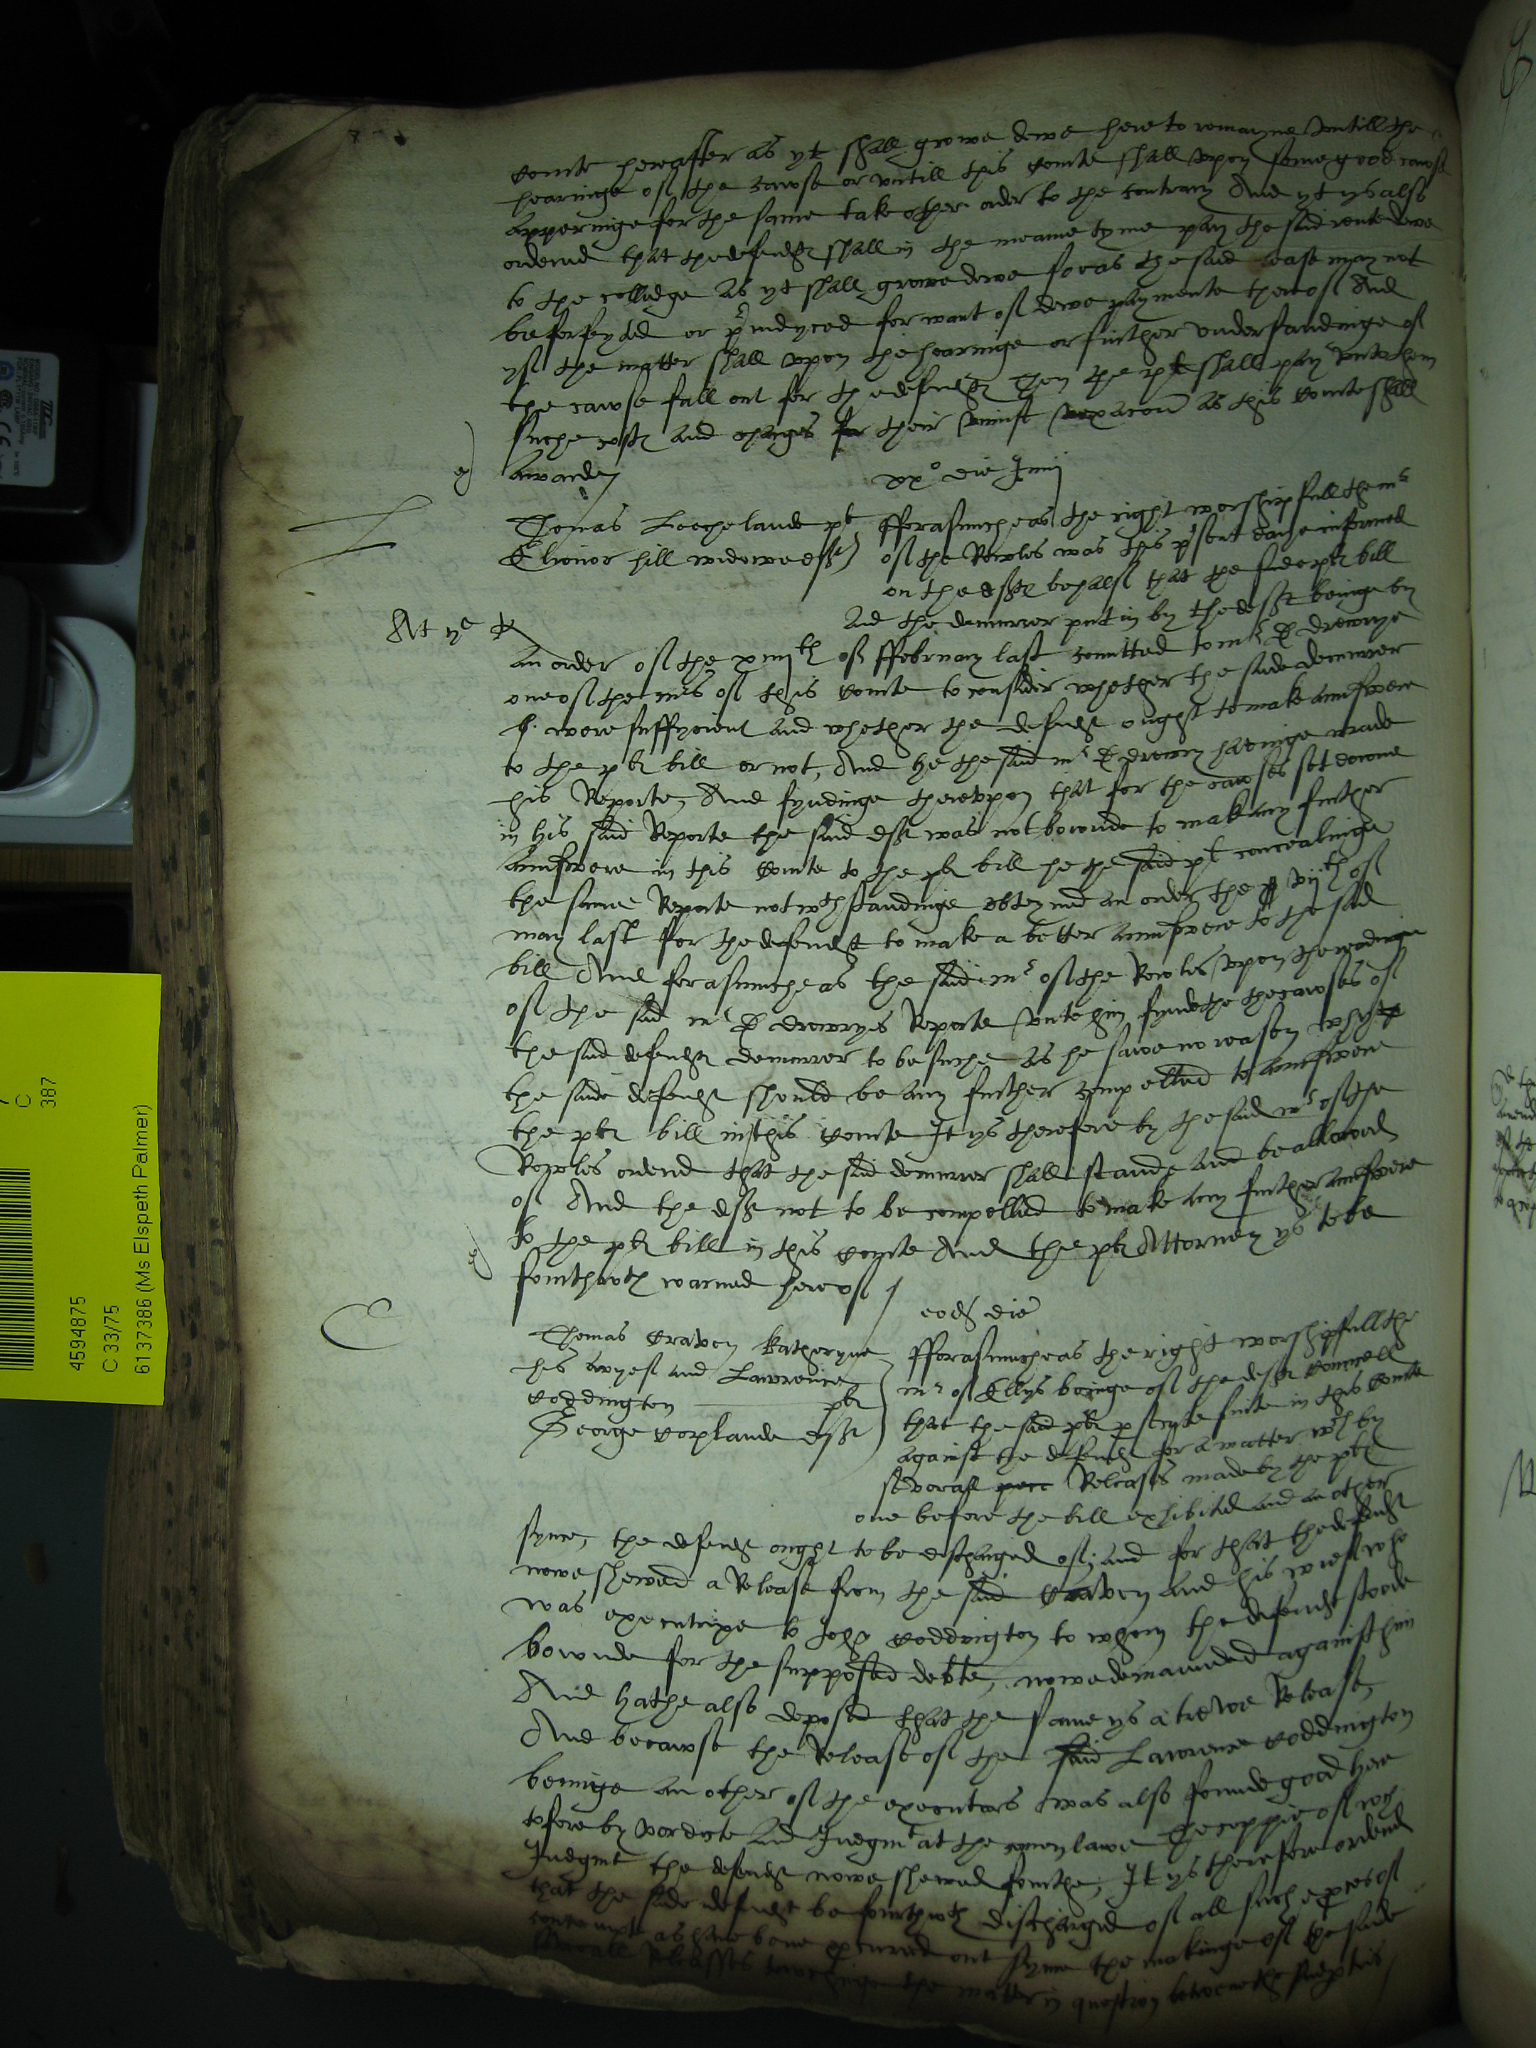 courte herafter as yt shall growe dewe here to remayne vntill the
hearinge of the cawse or vntill this courte shall vpon some good cawse
apperinge for the same take other order to the contrary And yt ys also
ordered that the defendtes shall in the meane tyme pay the said rente dewe
to the colledge as yt shall growe dewe so as the said lease may not
be forfeyted or preiudyced for want of dewe paymente therof And
yf the matter shall vpon the hearinge or further vnderstandinge of
the cawse fall out for the defendtes Then the plt shall pay vnto them
suche costes and charges for their vniust vexacon as this courte shall
awarde
xxo die Junij
Thomas Locheland plt
Elionor hill widowe deft
fforasmuche as the right worshipfull the mr
of the Rowles was this present daye informed
on the deftes behalf that the said pltes bill
At ye
and the demurrer put in by the deft beinge by
an order of the xiiijth of ffebruary last comitted to mr D drewrye
one of the mrs of this courte to consider whether the saide demurrer
were suffycient and whether the defendt ought to make aunswere
to the pltes bill or not, And he the said mr D drewry havinge made
his Reporte, And fyndinge therevpon that for the cawses set downe
in his said Reporte the said deft was not bownde to make any further
aunswere in this courte to the pltes bill he the said plt concealinge
the same Reporte notwthstandinge obteyned an order the xvijth of
may last for the defendt to make a better aunswere to the said
bill And forasmuche as the said mr of the Rowles vpon the readinge
of the said mr D drewryes Reporte vnto him fyndethe the cawses of
the said defendtes demurrer to be suche as he sawe no reason why
the saide defendt should be any further compelled to aunswere
the pltes bill in this courte It ys therefore by the said mr of the
Rowles ordered that the said demurrer shall stande and be allowed
of And the deft not to be compelled to make any further aunswere
to the pltes bill in this courte And the pltes Attorney ys to be
fourthwth warned hereof
eodm die
Thomas Craven Katheryne
his wyef and Lawrence
Coddington pltes
George Coplande deft
fforasmucheas the right worshipfull the
mr of Ellys beinge of the deftes councell
that the said pltes psecute suite in this courte
against the defendt for a matter wch by
severall Releases made by the pltes
one before the bill exhibited and an other
synce, the defendt ought to be discharged of; and for that the defendt
nowe shewed a Release from the said Craven and his wief who
was executrixe to John Coddington to whom the defendt stoode
bownde for the supposed debte, nowe demaunded against him
And hathe also deposed that the same ys a trewe Release,
And becawse the Release of the said Lawrence Coddington
beinge an other of the executors was also founde good here
tofore by verdicte and Judgmt at the comen lawe The coppie of wch
Judgmt the defendt nowe shewed fourthe, It ys therefore ordered
that the saide defendt be fourthwth discharged of all such proces of
contempt as have bene procured out synce the makinge of the saide
Releasses towchinge the matter in question betwene the said pties

4594875
C 33/75
6137386 (Ms Elspeth Palmer)
C
387